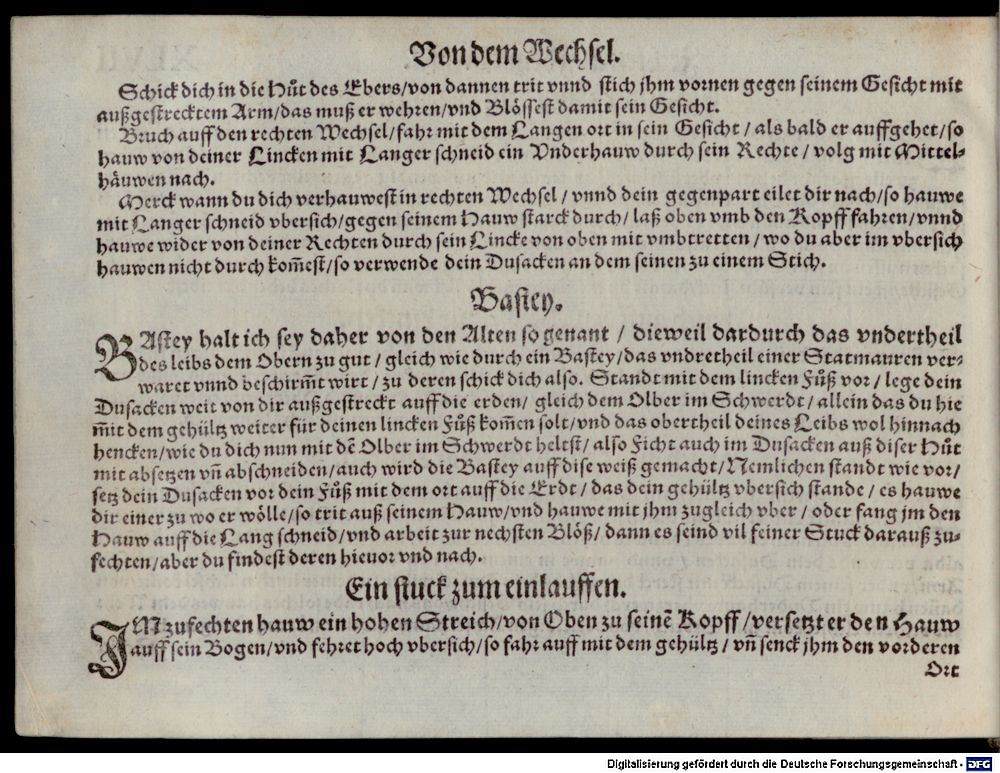 Von dem Wechsel.
Schick dich in die Hůt des Ebers/von dannen trit vnnd stich jhm vornen gegen seinem Gesicht mit
außgestrecktem Arm/das muß er wehren/vnd Blössest damit sein Gesicht.
Bruch auff den rechten Wechsel/fahr mit dem Langen ort in sein Gesicht/als bald er auffgehet/so
hauw von deiner Lincken mit Langer schneid ein Vnderhauw durch sein Rechte/volg mit Mittel-
häuwen nach.
Merck wann du dich verhauwest in rechten Wechsel/vnnd dein gegenpart eilet dir nach/so hauwe
mit Langer schneid vbersich/gegen seinem Hauw starck durch/laß oben vmb den Kopff fahren/vnnd
hauwe wider von deiner Rechten durch sein Lincke von oben mit vmbtretten/wo du aber im vbersich
hauwen nicht durch kom̃est/so verwende dein Dusacken an dem seinen zu einem Stich.
Bastey.
BAstey halt ich sey daher von den Alten so genant/dieweil dardurch das vndertheil
des leibs dem Obern zu gut/gleich wie durch ein Bastey/das vndretheil einer Statmauren ver-
waret vnnd beschirm̃t wirt/zu deren schick dich also. Standt mit dem lincken Fůß vor/lege dein
Dusacken weit von dir außgestreckt auff die erden/gleich dem Olber im Schwerdt/allein das du hie
m̃it dem gehültz weiter für deinen lincken Fůß kom̃en solt/vnd das obertheil deines Leibs wol hinnach
hencken/wie du dich nun mit dẽ Olber im Schwerdt heltst/also Ficht auch im Dusacken auß diser Hůt
mit absetzen vñ abschneiden/auch wird die Bastey auff dise weiß gemacht/Nemlichen standt wie vor/
setz dein Dusacken vor dein Fůß mit dem ort auff die Erdt/das dein gehültz vbersich stande/es hauwe
dir einer zu wo er wölle/so trit auß seinem Hauw/vnd hauwe mit jhm zugleich vber/oder fang jm den
Hauw auff die Lang schneid/vnd arbeit zur nechsten Blöß/dann es seind vil feiner Stuck darauß zu-
fechten/aber du findest deren hieuor vnd nach.
Ein stuck zum einlauffen.
IM zufechten hauw ein hohen Streich/von Oben zu seinẽ Kopff/versetzt er den Hauw
auff sein Bogen/vnd fehret hoch vbersich/so fahr auff mit dem gehültz/vñ senck jhm den vorderen
Ort
Digitalisierung gefördert durch die Deutsche Forschungsgemeinschaft - DFG